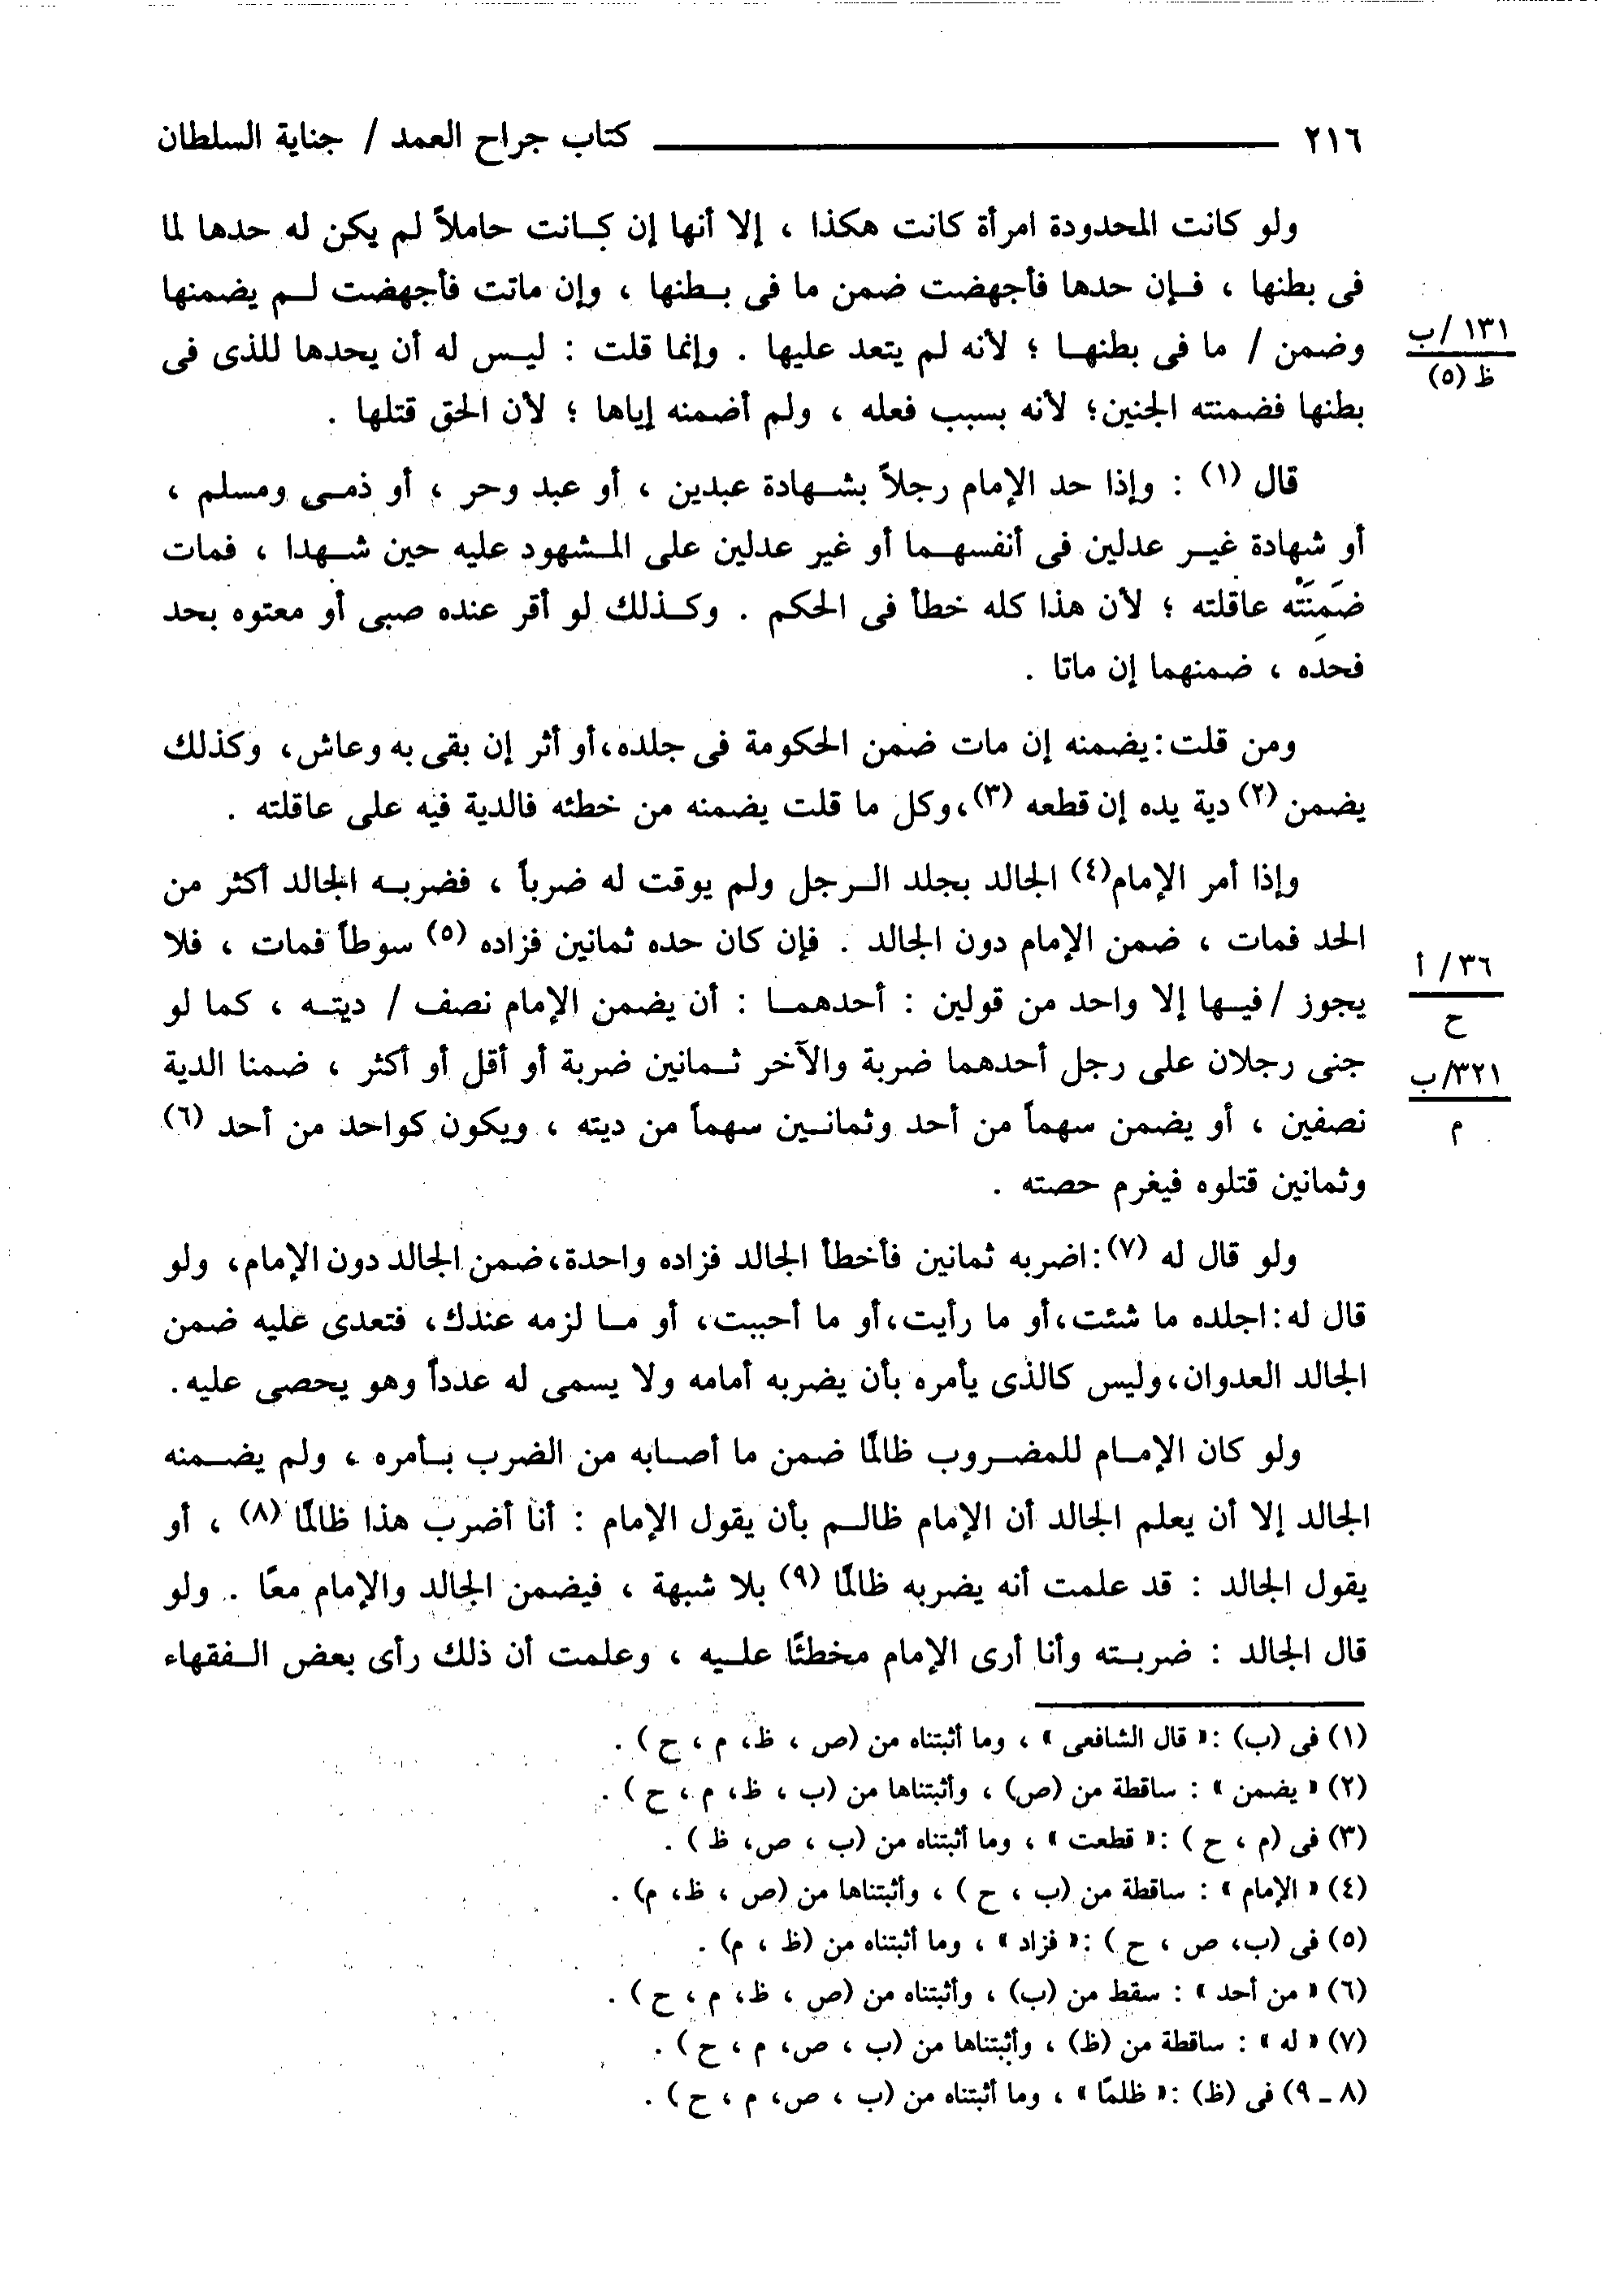 ٢١٦ كتاب جراح العمد / جناية السلطان
ولو كانت المحدودة امرأة كانت هكذا ، إلا أنها إن كانت حاملاً لم يكن له حدها لما
فى بطنها ، فإن حدها فأجهضت ضمن ما فى بطنها ، وإن ماتت فأجهضت لم يضمنها
وضمن / ما فى بطنها ؛ لأنه لم يتعد عليها . وإنما قلت : ليس له أن يحدها للذى فى
١٣١/ب
ظ (٥)
بطنها فضمنته الجنين؛ لأنه بسبب فعله ، ولم أضمنه إياها ؛ لأن الحق قتلها .
قال (١) : وإذا حد الإمام رجلاً بشهادة عبدين ، أو عبد وحر ، أو ذمى ومسلم ،
أو شهادة غير عدلين فى أنفسهما أو غير عدلين على المشهود عليه حين شهدا ، فمات
ضَمِنَتْه عاقلته ؛ لأن هذا كله خطأ فى الحكم . وكذلك لو أقر عنده صبى أو معتوه بحد
فحده ، ضمنهما إن ماتا .
ومن قلت: يضمنه إن مات ضمن الحكومة فى جلده،أو أثر إن بقى به وعاش، وكذلك
يضمن (٢) دية يده إن قطعه (٣)،وكل ما قلت يضمنه من خطئه فالدية فيه على عاقلته .
وإذا أمر الإمام(٤) الجالد بجلد الرجل ولم يوقت له ضرباً ، فضربه الجالد أكثر من
الحد فمات ، ضمن الإمام دون الجالد . فإن كان حده ثمانين فزاده (٥) سوطاً فمات ، فلا
يجوز / فيها إلا واحد من قولين : أحدهما : أن يضمن الإمام نصف / ديته ، كما لو
٣٦/ أ
ح
جنى رجلان على رجل أحدهما ضربة والآخر ثمانين ضربة أو أقل أو أكثر ، ضمنا الدية
٣٢١/ب
م
نصفين ، أو يضمن سهماً من أحد وثمانين سهماً من ديته ، ويكون كواحد من أحد (٦)
وثمانين قتلوه فيغرم حصته .
ولو قال له (٧): اضربه ثمانين فأخطأ الجالد فزاده واحدة،ضمن الجالد دون الإمام، ولو
قال له: اجلده ما شئت،أو ما رأيت،أو ما أحببت، أو ما لزمه عندك، فتعدى عليه ضمن
الجالد العدوان،وليس كالذى يأمره بأن يضربه أمامه ولا يسمى له عدداً وهو يحصى عليه.
ولو كان الإمام للمضروب ظالمًا ضمن ما أصابه من الضرب بأمره ، ولم يضمنه
الجالد إلا أن يعلم الجالد أن الإمام ظالم بأن يقول الإمام : أنا أضرب هذا ظالمًا (٨) ، أو
يقول الجالد : قد علمت أنه يضربه ظالمًا (٩) بلا شبهة ، فيضمن الجالد والإمام معًا . ولو
قال الجالد : ضربته وأنا أرى الإمام مخطئًا عليه ، وعلمت أن ذلك رأى بعض الفقهاء
(١) فى (ب) :« قال الشافعى » ، وما أثبتناه من (ص ، ظ، م ، ح ) .
(٢) « يضمن » : ساقطة من (ص) ، وأثبتناها من (ب ، ظ، م ، ح ) .
(٣) فى (م ، ح ) :« قطعت » ، وما أثبتناه من (ب ، ص، ظ ) .
(٤) « الإمام » : ساقطة من (ب ، ح ) ، وأثبتناها من (ص ، ظ، م) .
(٥) فى (ب، ص ، ح ) :« فزاد » ، وما أثبتناه من (ظ ، م) .
(٦) « من أحد » : سقط من (ب) ، وأثبتناه من (ص ، ظ، م ، ح ) .
(٧) « له » : ساقطة من (ظ) ، وأثبتناها من (ب ، ص، م ، ح ) .
(٨ ـ ٩) فى (ظ) :« ظلمًا » ، وما أثبتناه من (ب ، ص، م ، ح ) .